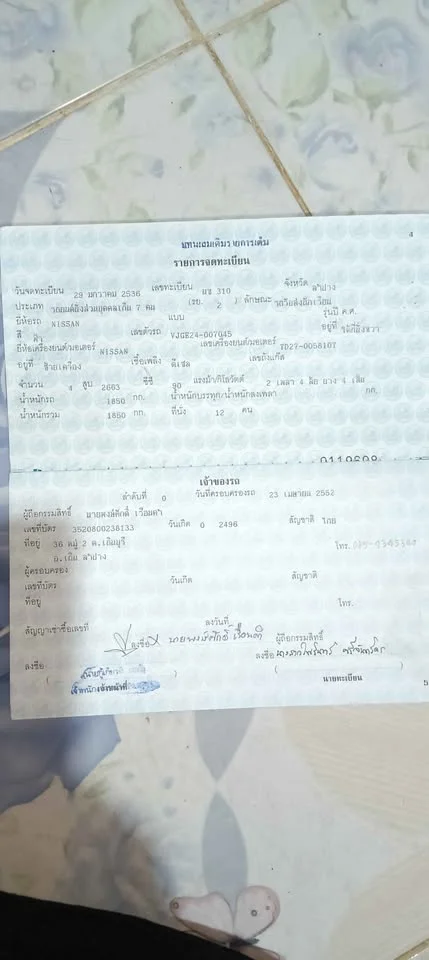 4
แทนเล่มเดิมรายการเดิม
รายการจดทะเบียน
วันจดทะเบียน 29 มกราคม 2536 เลขทะเบียน 310 จังหวัด ลำปาง
ประเภท รถยนต์นั่งส่วนบุคคลเกิน 7 คน (รย. 2 ) ลักษณะ
ยี่ห้อรถ NISSAN แบบ รุ่นปี ค.ศ.
สี เลขตัวรถ VJGE24-007045 อยู่ที่
ยี่ห้อเครื่องยนต์/มอเตอร์ NISSAN เลขเครื่องยนต์/มอเตอร์ TD27-005810Y
อยู่ที่ ซ้ายเครื่อง เชื้อเพลิง ดีเซล เลขถังแก๊ส
จำนวน 4 สูบ 2663 ซีซี 90 แรงม้า/กิโลวัตต์ 2 เพลา 4 ล้อ ยาง 4 เส้น
น้ำหนักรถ 1850 กก. น้ำหนักบรรทุก/น้ำหนักลงเพลา กก.
น้ำหนักรวม 1850 กก. ที่นั่ง 12 คน
เจ้าของรถ
ลำดับที่ 0 วันที่ครอบครองรถ 23 เมษายน 2552
ผู้ถือกรรมสิทธิ์ นายพงษ์ศักดิ์
เลขที่บัตร 3520800238133 วันเกิด 0 2496 สัญชาติ ไทย
ที่อยู่ 36 หมู่ 2 ต.เถินบุรี โทร.
อ.เถิน ลำปาง
ผู้ครอบครอง
เลขที่บัตร วันเกิด สัญชาติ
ที่อยู่ โทร.
สัญญาเช่าซื้อเลขที่ ลงวันที่
ลงชื่อ นายพงษ์ศักดิ์ ผู้ถือกรรมสิทธิ์
ลงชื่อ ลงชื่อ
นายทะเบียน
5